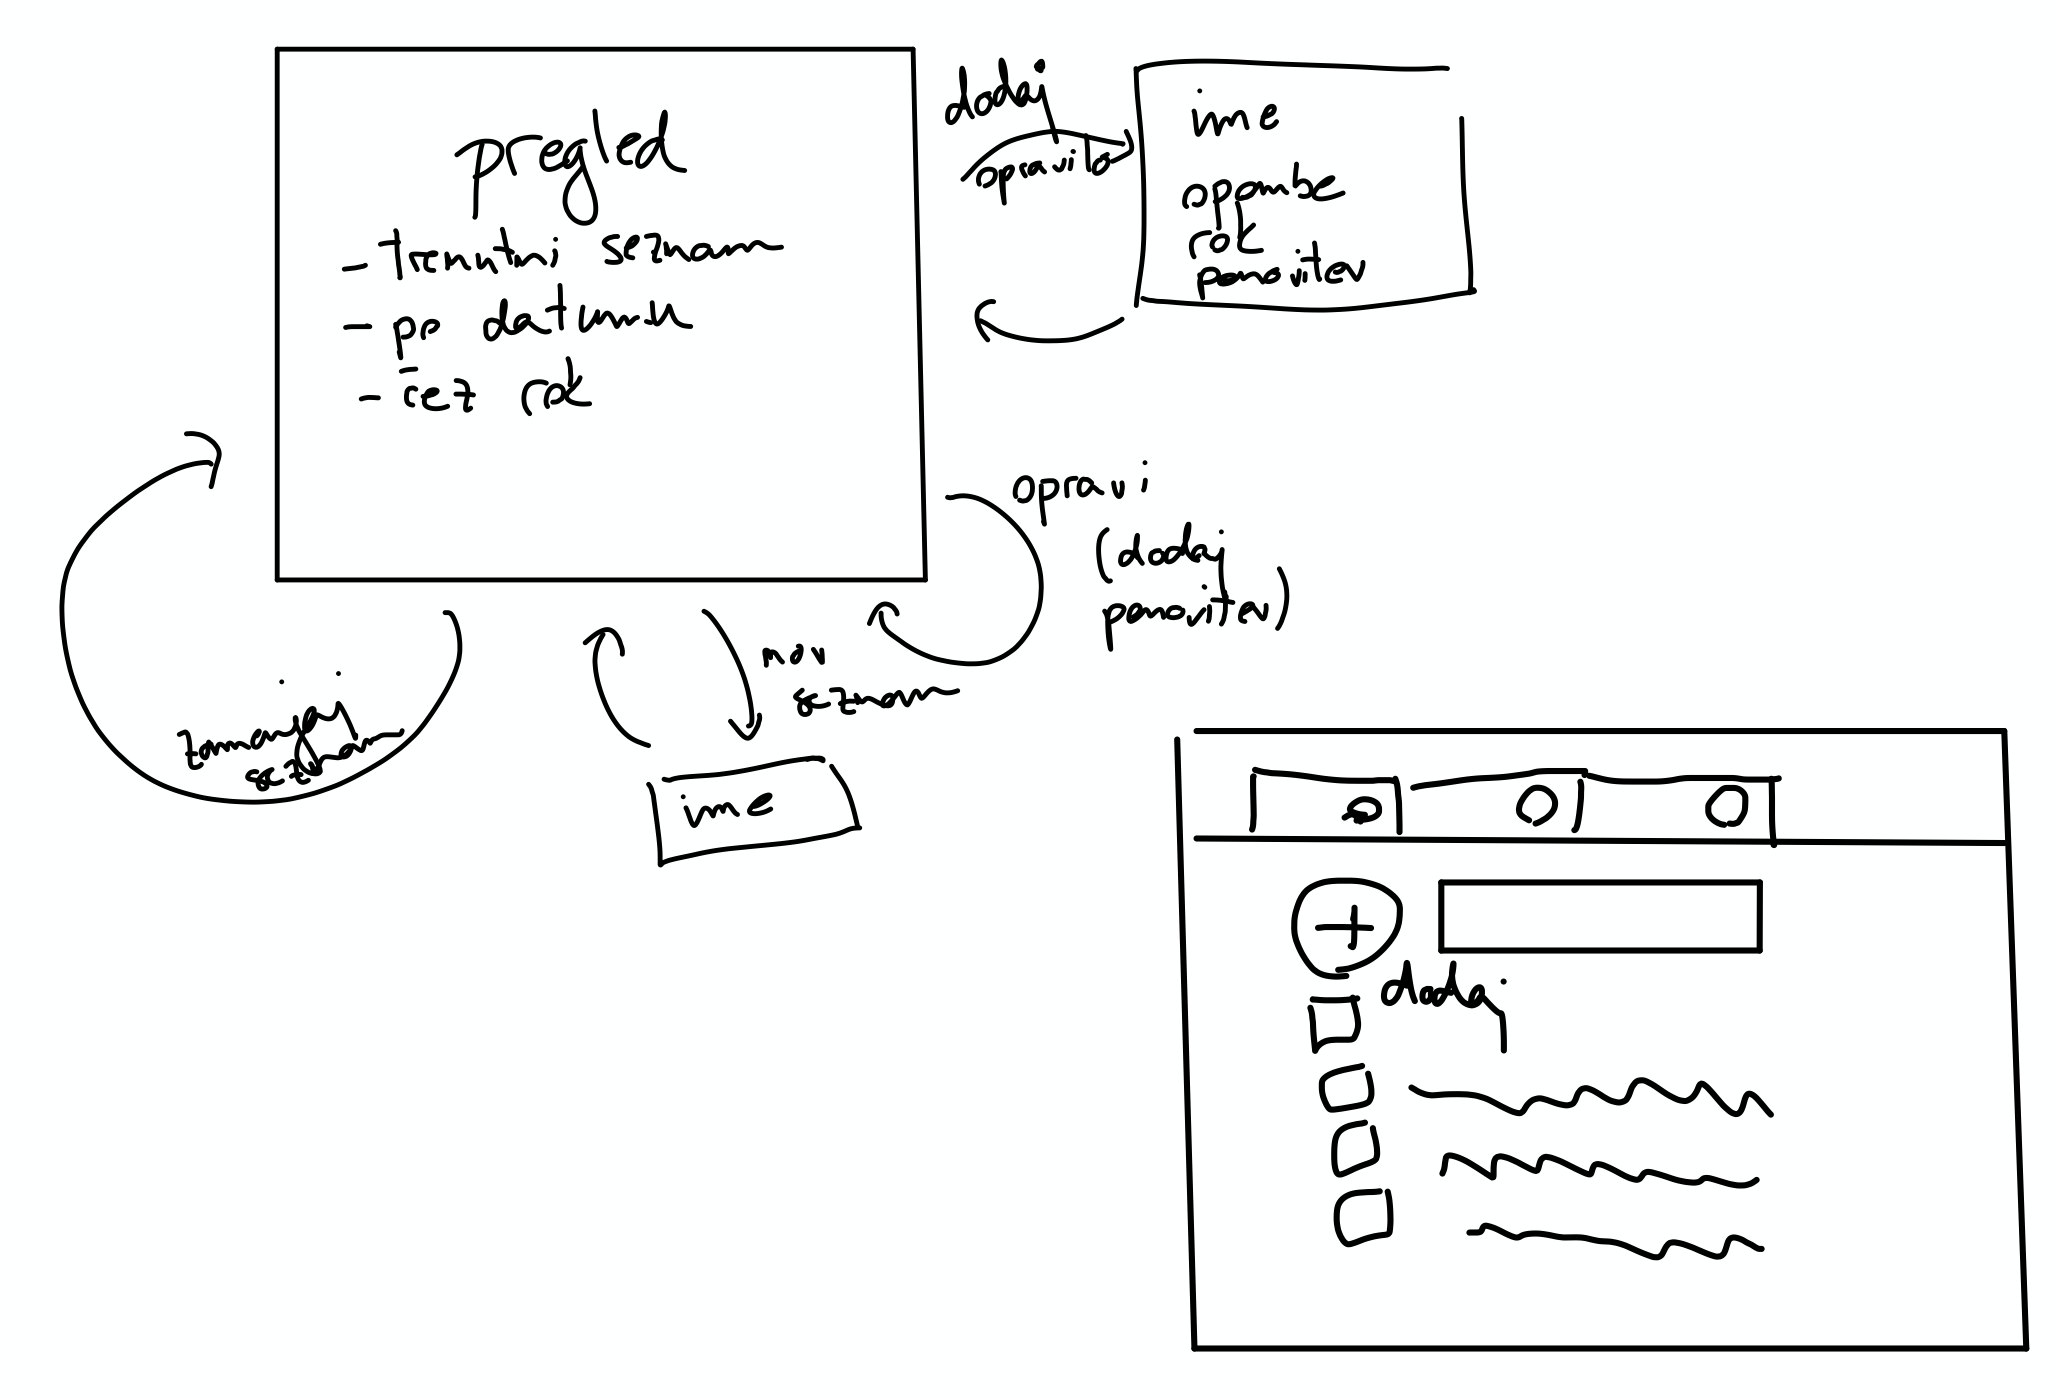 pregled
- trenutni seznam
- po datumu
- čez rok
dodaj
opravilo
ime
opombe
rok
ponovitev
opravi
(dodaj
ponovitev)
nov
seznam
ime
zamenjaj
seznam
+
dodaj